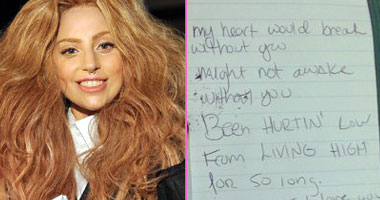 my heart would break
without you
might not awake
without you
BEEN HURTIN' LOW
FROM LIVING HIGH
for so long.